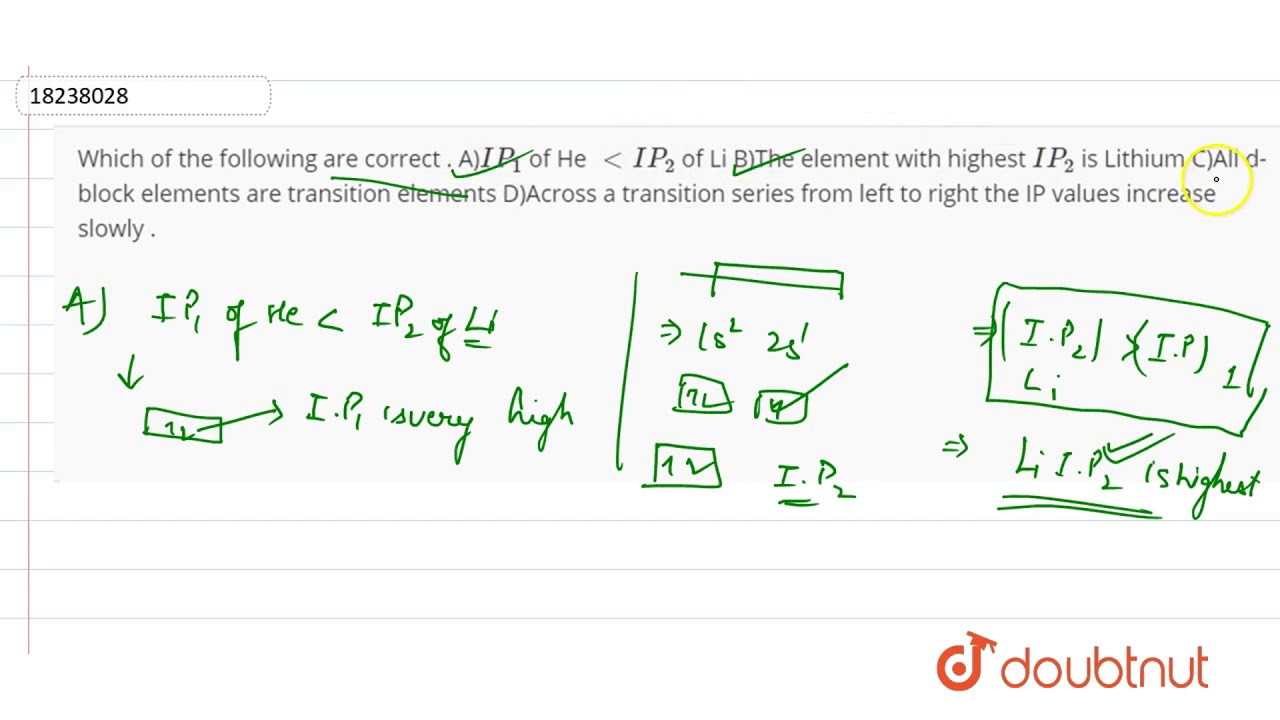 18238028
Which of the following are correct . A)IP₁ of He < IP₂ of Li B)The element with highest IP₂ is Lithium C)All d-
block elements are transition elements D)Across a transition series from left to right the IP values increase
slowly .
A) IP₁ of He < IP₂ of Li
I.P₁ is very high
⇒ 1s² 2s¹
I.P₂
⇒ (I.P₂) > (I.P)₁
Li
⇒ Li I.P₂ is highest
doubtnut